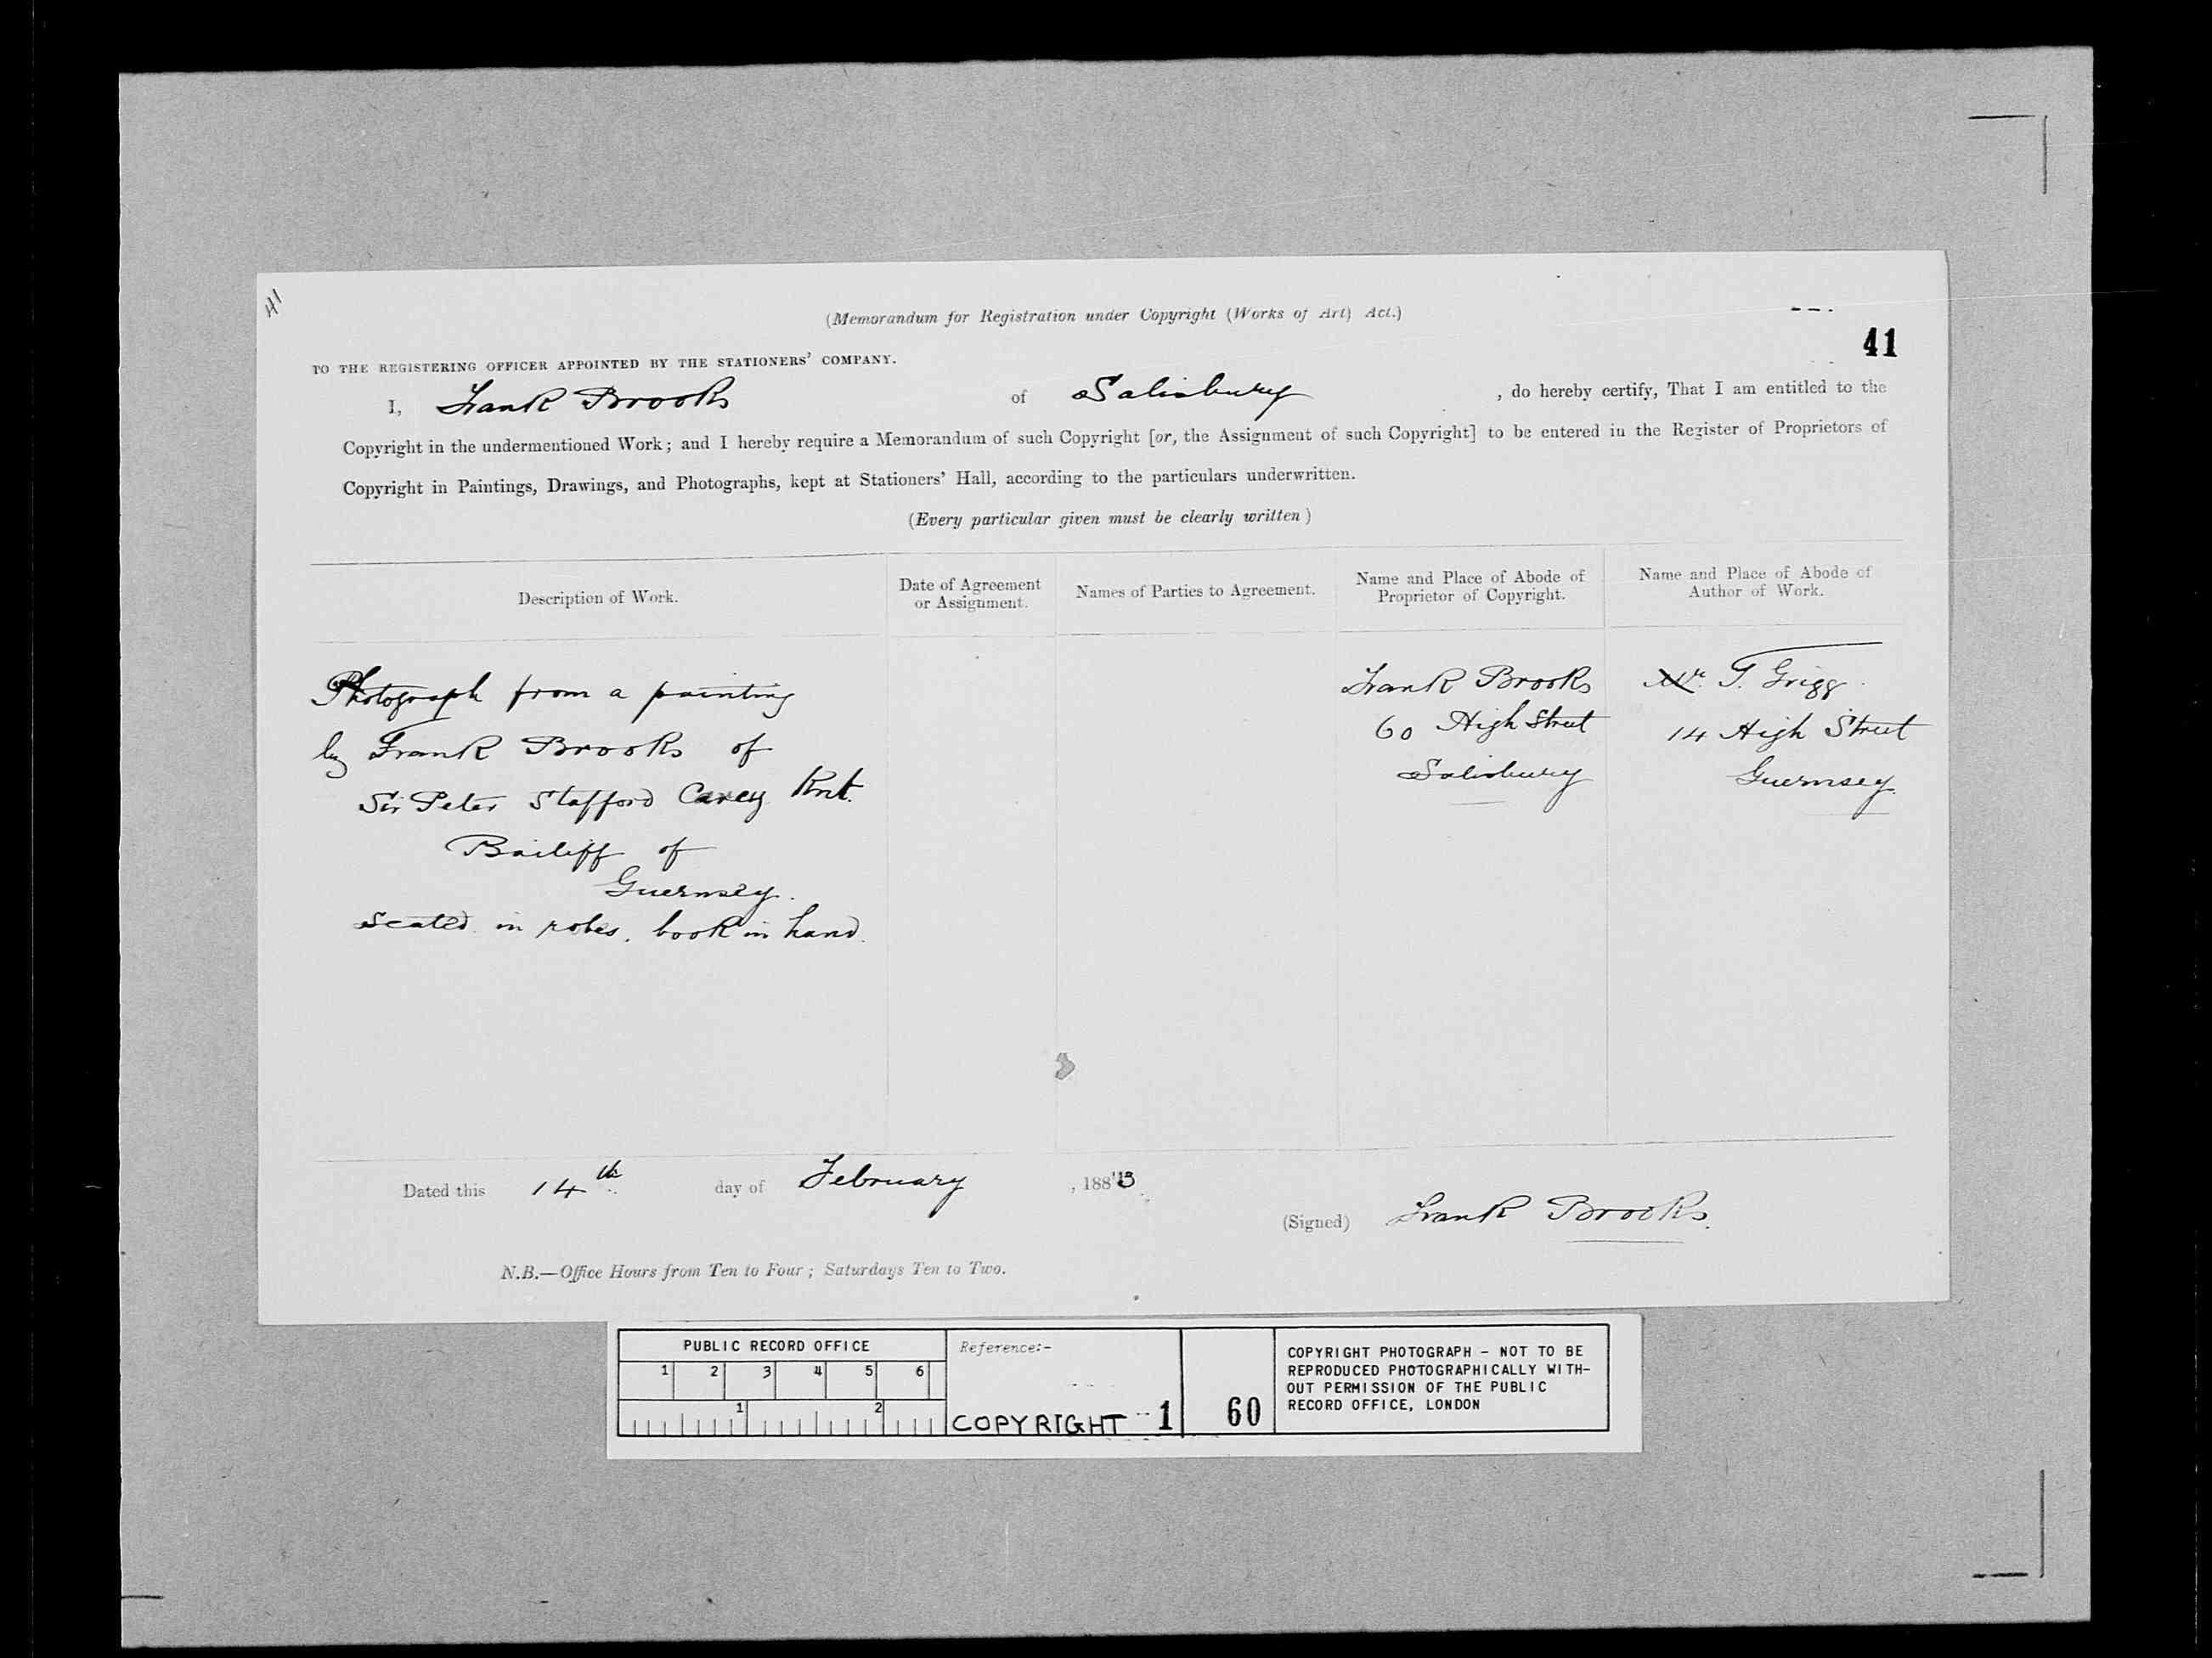 41
(Memorandum for Registration under Copyright (Works of Art) Act.)
41
TO THE REGISTERING OFFICER APPOINTED BY THE STATIONERS' COMPANY.
I, Frank Brooks of Salisbury , do hereby certify, That I am entitled to the
Copyright in the undermentioned Work; and I hereby require a Memorandum of such Copyright [or, the Assignment of such Copyright] to be entered in the Register of Proprietors of
Copyright in Paintings, Drawings, and Photographs, kept at Stationers' Hall, according to the particulars underwritten.
(Every particular given must be clearly written)
Description of Work.
Date of Agreement
or Assignment.
Names of Parties to Agreement.
Name and Place of Abode of
Proprietor of Copyright.
Name and Place of Abode of
Author of Work.
Photograph from a painting
by Frank Brooks of
Sir Peter Stafford Carey Knt.
Bailiff of
Guernsey.
seated in robes, book in hand.
Frank Brooks
60 High Street
Salisbury
Mr. T. Grigg
14 High Street
Guernsey.
Dated this 14th day of February , 1883
(Signed) Frank Brooks.
N.B.—Office Hours from Ten to Four; Saturdays Ten to Two.
PUBLIC RECORD OFFICE
1 2 3 4 5 6
1 2
Reference:-
COPYRIGHT 1
60
COPYRIGHT PHOTOGRAPH - NOT TO BE
REPRODUCED PHOTOGRAPHICALLY WITH-
OUT PERMISSION OF THE PUBLIC
RECORD OFFICE, LONDON